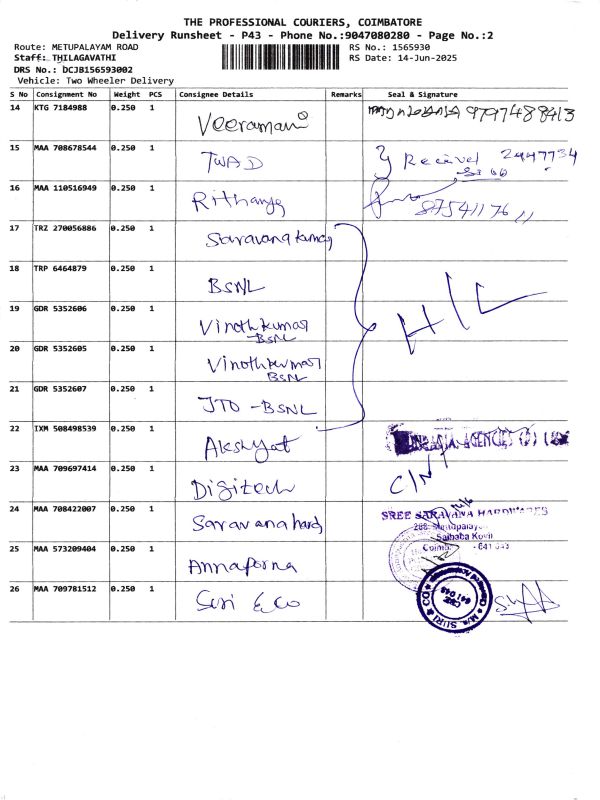 THE PROFESSIONAL COURIERS, COIMBATORE
Delivery Runsheet - P43 - Phone No.:9047080280 - Page No.:2
Route: METUPALAYAM ROAD RS No.: 1565930
Staff: THILAGAVATHI RS Date: 14-Jun-2025
DRS No.: DCJB156593002
Vehicle: Two Wheeler Delivery
S No Consignment No Weight PCS Consignee Details Remarks Seal & Signature
14 KTG 7184988 0.250 1 Veeramani 9797488413
15 MAA 708678544 0.250 1 TWAD Received 2447734
16 MAA 110516949 0.250 1 Rithanya 8754117611
17 TRZ 270056886 0.250 1 Saravana kumar
18 TRP 6464879 0.250 1 BSNL H/L
19 GDR 5352606 0.250 1 Vinothkumar
-BSNL
20 GDR 5352605 0.250 1 Vinothkumar
BSNL
21 GDR 5352607 0.250 1 JTO -BSNL
22 IXM 508498539 0.250 1 Akshyat AGENCIES
23 MAA 709697414 0.250 1 Digitech
24 MAA 708422007 0.250 1 Saravana hard SREE SARAVANA HARDWARES
Saibaba Kovil
25 MAA 573209404 0.250 1 Annaporna Coimb - 641 043
26 MAA 709781512 0.250 1 Suri & Co M/s. SURI & CO
CBE
641 043